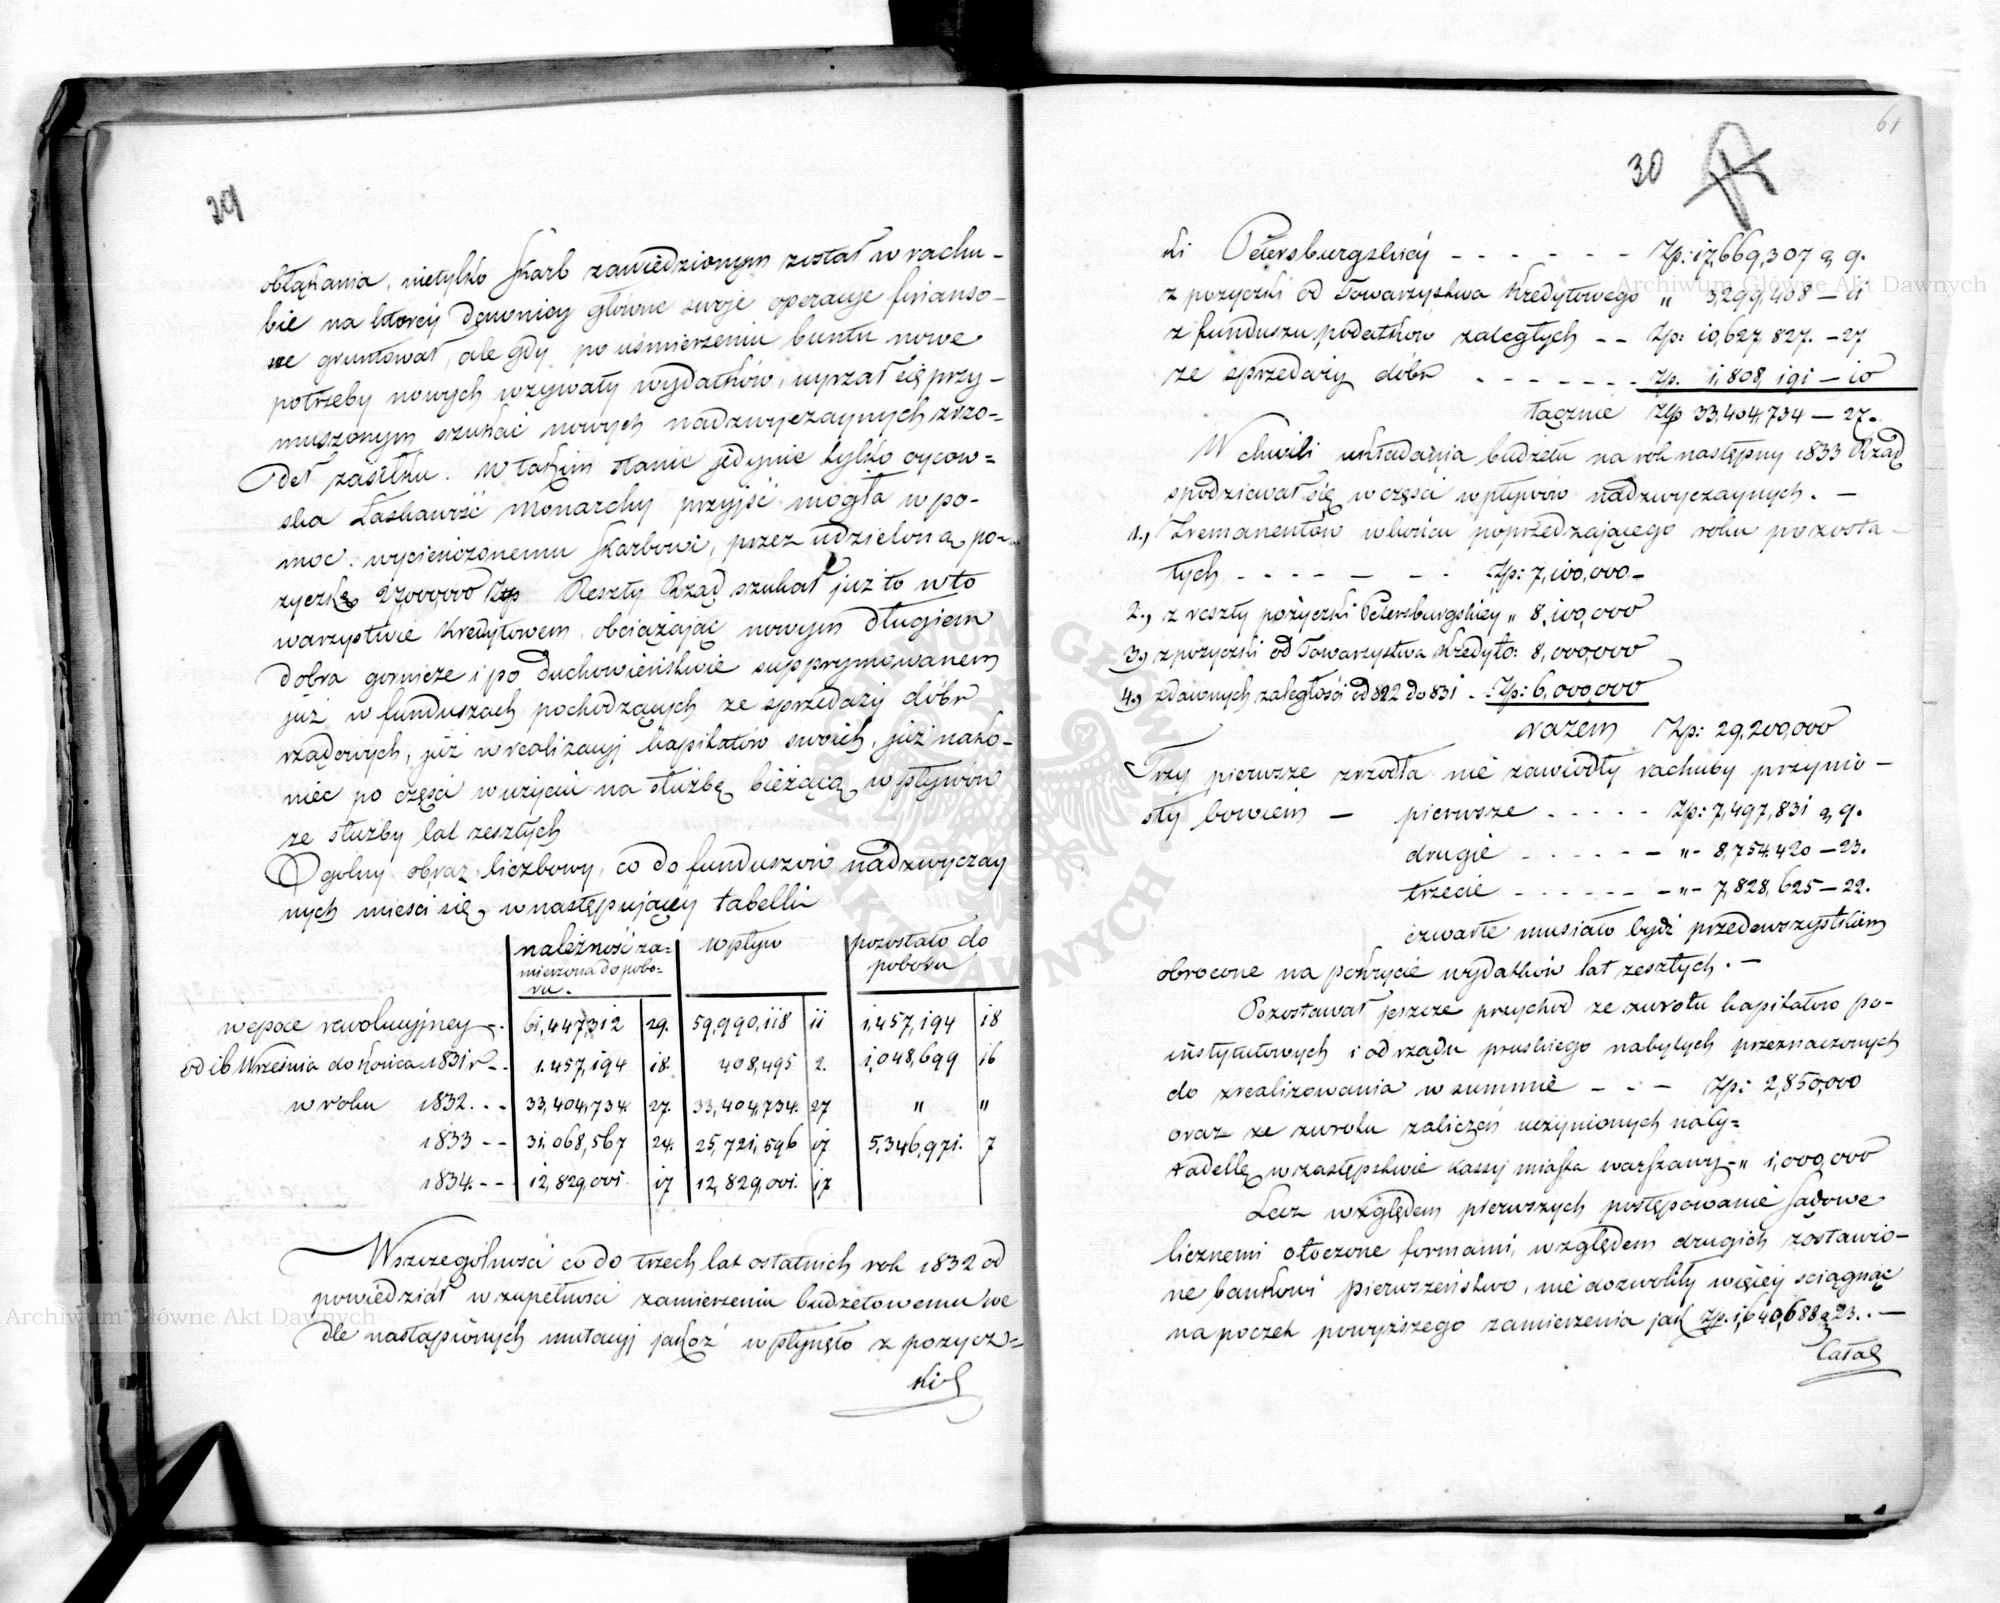 29
obłąkania, nietylko Skarb zawiedzionym został w rachu-
bie na którey dawniey główne swoje operacye finanso-
we gruntował, ale gdy po uśmierzeniu buntu nowe
potrzeby nowych wzywały wydatków, uyrzał się przy-
muszonym szukać nowych nadzwyczaynych zrzo-
deł zasiłku. W takim stanie jedynie tylko oycow=
ska Łaskawość Monarchy przyjść mogła w po-
moc wycieńczonemu Skarbowi, przez udzieloną po-
zyczkę 27,000,000 Złp Reszty Rząd szukał już to w to
warzystwie Kredytowem obciążając nowym długiem
dobra gornicze i po Duchowieństwie supprymowanem
już w funduszach pochodzących ze sprzedaży dóbr
rządowych, już w realizacyi kapitałów swoich, już nako-
niec po części w użyciu na służbę bieżącą wpływów
ze służby lat zeszłych
Ogolny obraz liczbowy, co do funduszów nadzwyczay
nych mieści się w następującey tabelli
należność za=
mierzona do pobo=
ru.
wpływ
pozostało do
poboru
w epoce rewolucyjney - . 61,447,312 29. 59,990,118 11 1,457,194 18
od 16 Września do końca 1831 r - . 1.457,194 18. 408,495 2. 1,048,699 16
w roku 1832. . - 33,404,734. 27. 33,404,734. 27 " "
1833 - - 31,068,567 24. 25,721,596 17 5,346,971. 7
1834. - - 12,829,001. 17 12,829,001. 17
Wszczególności co do trzech lat ostatnich rok 1832 od
powiedział w zupełności zamierzeniu budżetowemu we
dle nastąpionych mutacyj jakoż wpłynęło z pozycz-
ki
61
30
ki Petersburgskiéy - - - - - - Zp: 17,669,307 a 9.
z pozyczki od Towarzystwa Kredytowego " 3,299,408 - 11
z funduszu podatków zaległych - - Zp: 10,627,827. - 27
ze sprzedaży dóbr - - - - - - - Zp. 1,808,191 - 10
łącznie Złp 33,404,734 - 27.
W chwili układania budżetu na rok następny 1833 Rząd
spodziewał się w części wpływów nadzwyczaynych. -
1., Z remanentów w końcu poprzedzającego roku pozosta-
łych - - - - - - Zp: 7,100,000 -
2., z reszty pożyczki Petersburgskiey " 8,100,000
3., z pozyczki od Towarzystwa Kredyto: 8,000,000
4., z dawnych zaległości od 822 do 831 . Zp: 6,000,000
razem Zp: 29,200,000
Trzy pierwsze zrzodła nie zawiodły rachuby przynio-
sły bowiem - pierwsze - - - - - Zp: 7,497,831 a 9.
drugie - - - - - " - 8,754,420 - 23.
trzecie - - - - - - - " - 7,828,625 - 22.
czwarte musiało bydź przedewszystkiem
obrocone na pokrycie wydatków lat zeszłych. -
Pozostawał jeszcze przychod ze zwrotu kapitałów po-
instytutowych i od rządu pruskiego nabytych przeznaczonych
do zrealizowania w summie - - - Zp: 2,850,000
oraz ze zwrotu zaliczeń uczynionych na Cy=
tadellę w zastępstwie Kassy miasta Warszawy - " 1,000,000
Lecz względem pierwszych postępowanie Sądowe
licznemi otoczone formami, względem drugich zostawio-
ne bankowi pierwszeństwo, nie dozwoliły więcey sciągnąć
na poczet powyższego zamierzenia jak Zp. 1,640,688 a 23. . -
Cała
Archiwum Główne Akt Dawnych
Archiwum Główne Akt Dawnych
ARCHIWUM GŁÓWNE AKT DAWNYCH